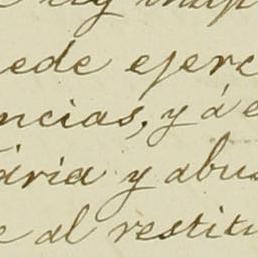 ede ejerc
ncias, y á e
aria y abus
e al restitu